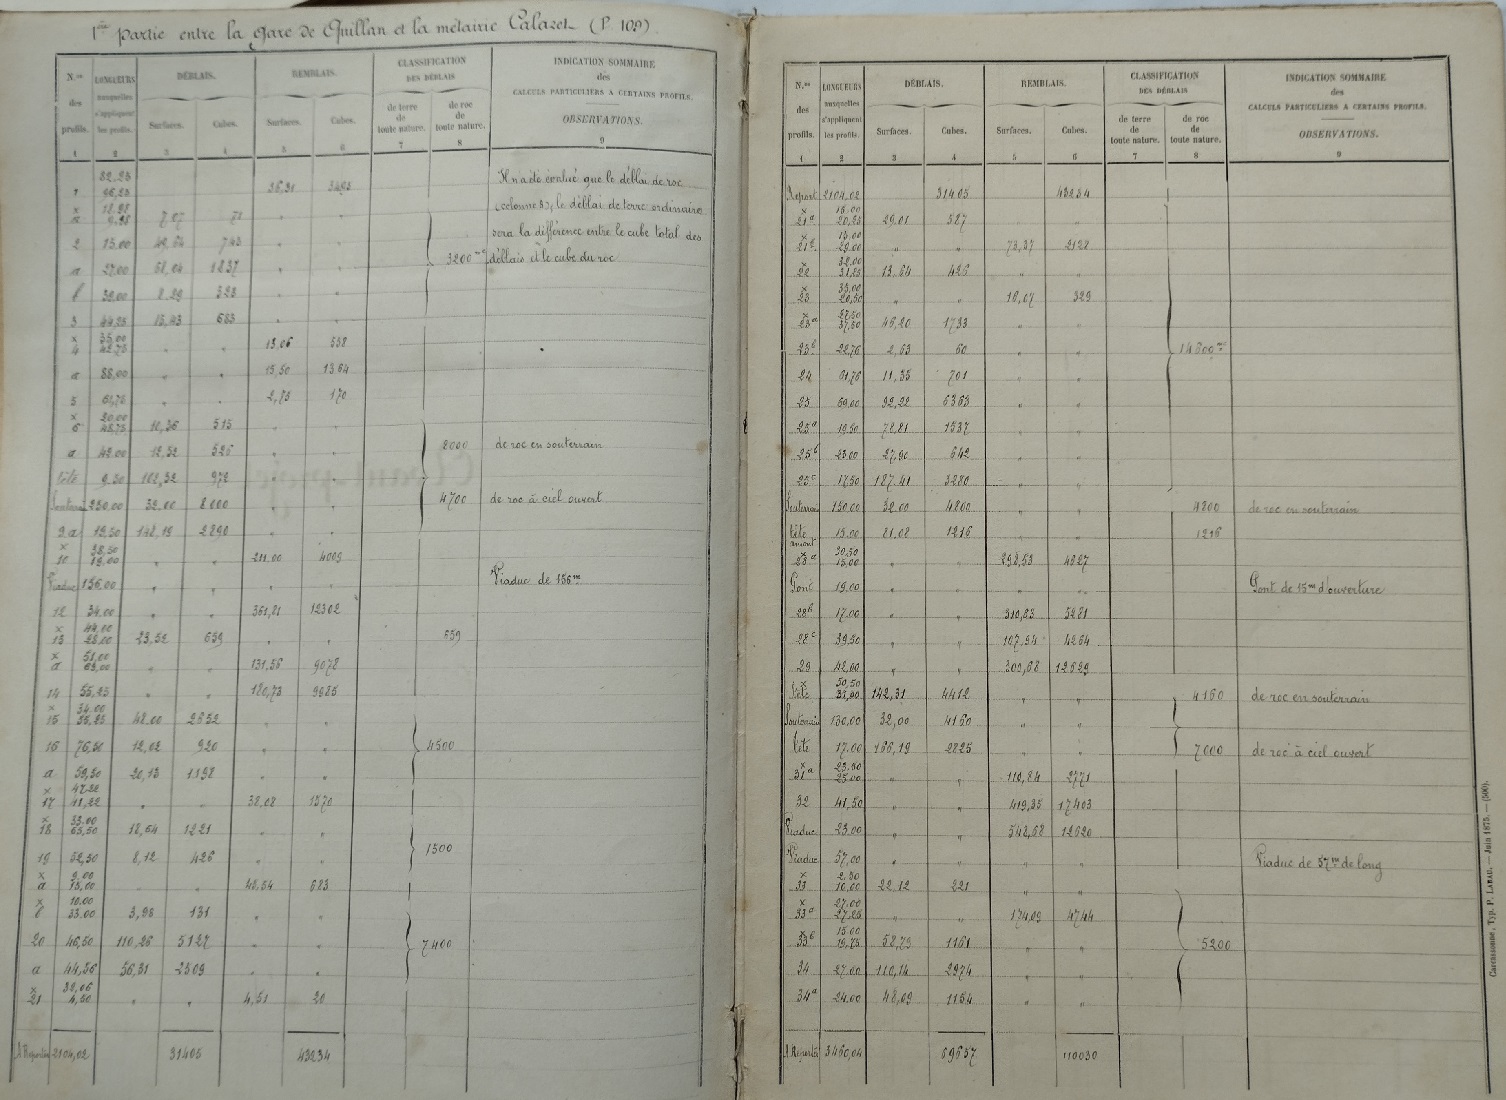 1ère partie entre la gare de Quillan et la métairie Calazet (P. 109)
N.os des profils. LONGUEURS auxquelles s'appliquent les profils. DÉBLAIS. Surfaces. Cubes. REMBLAIS. Surfaces. Cubes. CLASSIFICATION DES DÉBLAIS de terre de toute nature. de roc de toute nature. INDICATION SOMMAIRE des CALCULS PARTICULIERS A CERTAINS PROFILS. OBSERVATIONS.
1 2 3 4 5 6 7 8 9
Il n'a été évalué que le déblai de roc
(colonne 8), le déblai de terre ordinaire
sera la différence entre le cube total des
3200 déblais et le cube du roc
2 15.00 743
a 27,00 1837
3 683
x 35,00
4 42,75 13,06 558
a 88,00 15,50 1364
5 2,75 170
x 20,00
6 48,75 515
8000 de roc en souterrain
a 42,00 12,52 526
tête 9,50 102,32 972
Souterrain 250,00 32,00 8000 4700 de roc à ciel ouvert
9a 19,50 148,19 2890
x 38,50
10 19,00 211,00 4009
Viaduc 156,00 Viaduc de 156m
12 34,00 361,81 12302
x 44,00
13 28,00 23,52 659 659
x 51,00
a 69,00 131,56 9078
14 55,25 180,73 9985
x 34,00
15 55,25 48,00 2652
16 76,50 12,02 920 4500
a 59,50 20,13 1198
x 47,22
17 11,22 38,08 1570
x 33,00
18 65,50 18,64 1221
1500
19 52,50 8,12 426
x 9,00
a 15,00 48,54 683
x 10.00
b 33.00 3,98 131
20 46,50 110,26 5127 7400
a 44,56 56,31 2509
x 32,06
21 4,50 4,51 20
A Reporter 2104,02 31405 43234
N.os des profils. LONGUEURS auxquelles s'appliquent les profils. DÉBLAIS. Surfaces. Cubes. REMBLAIS. Surfaces. Cubes. CLASSIFICATION DES DÉBLAIS de terre de toute nature. de roc de toute nature. INDICATION SOMMAIRE des CALCULS PARTICULIERS A CERTAINS PROFILS. OBSERVATIONS.
1 2 3 4 5 6 7 8 9
Report 2104,02 31405 43234
x 18.00
21a 20,25 29,01 587
x 15.00
21b 29.00 73,37 2128
x 32.00
22 31,25 13,64 426
x 35,00
23 20,50 16,07 329
x 27,50
23a 37,50 46,20 1733
23b 22,76 2,63 60 14600mc
24 61,76 11,35 701
25 69,00 92,22 6363
25a 19,50 78,81 1537
25b 23.00 27,90 642
25c 17,50 187,41 3280
Souterrain 150,00 32,00 4800 4800 de roc en souterrain
tête amont 15.00 81,08 1216 1216
x 30,50
28a 15,00 4327
Pont 19,00 Pont de 15m d'ouverture
28b 17.00 310,63 5281
28c 39,50 107,94 4264
29 42,00 12629
x 50,50
tête 142,31 4412 4160 de roc en souterrain
Souterrain 130,00 32,00 4160
tête 17.00 166,19 2825 7000 de roc à ciel ouvert
x 23,50
31a 25,00 110,84 2771
32 41,50 419,35 17403
Viaduc 23,00 548,68 12620
Viaduc 57,00 Viaduc de 57m de long
x 2,50
33 10,00 22,12 221
x 27,00
33a 27,25 174,09 4744
x 15,00
33b 19,75 58,79 1161 5200
34 27,00 110,14 2974
34a 24,00 48,09 1154
A Reporter 3460,04 69657 110030
Carcassonne, Typ. P. LABAU. — Juin 1875. — (500)